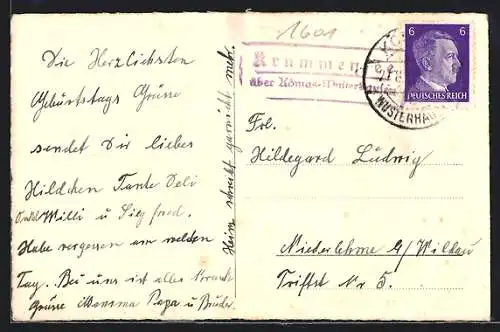 1601
Die Herzlichsten
Geburtstags Grüße
sendet Dir liebes
Hildchen Tante Deli
Onkel Willi u Siegfried.
Habe vergessen am welchen
Tag. Bei uns ist alles krank
Grüße Mamma Papa u Brüder.
Hein schreibt garnicht mehr.
Krummen-
über Königs-Wusterhausen
6 6
DEUTSCHES REICH
WUSTERHAU
Frl.
Hildegard Ludwig
Niederlehme b/Wildau
Triftst Nr 5.